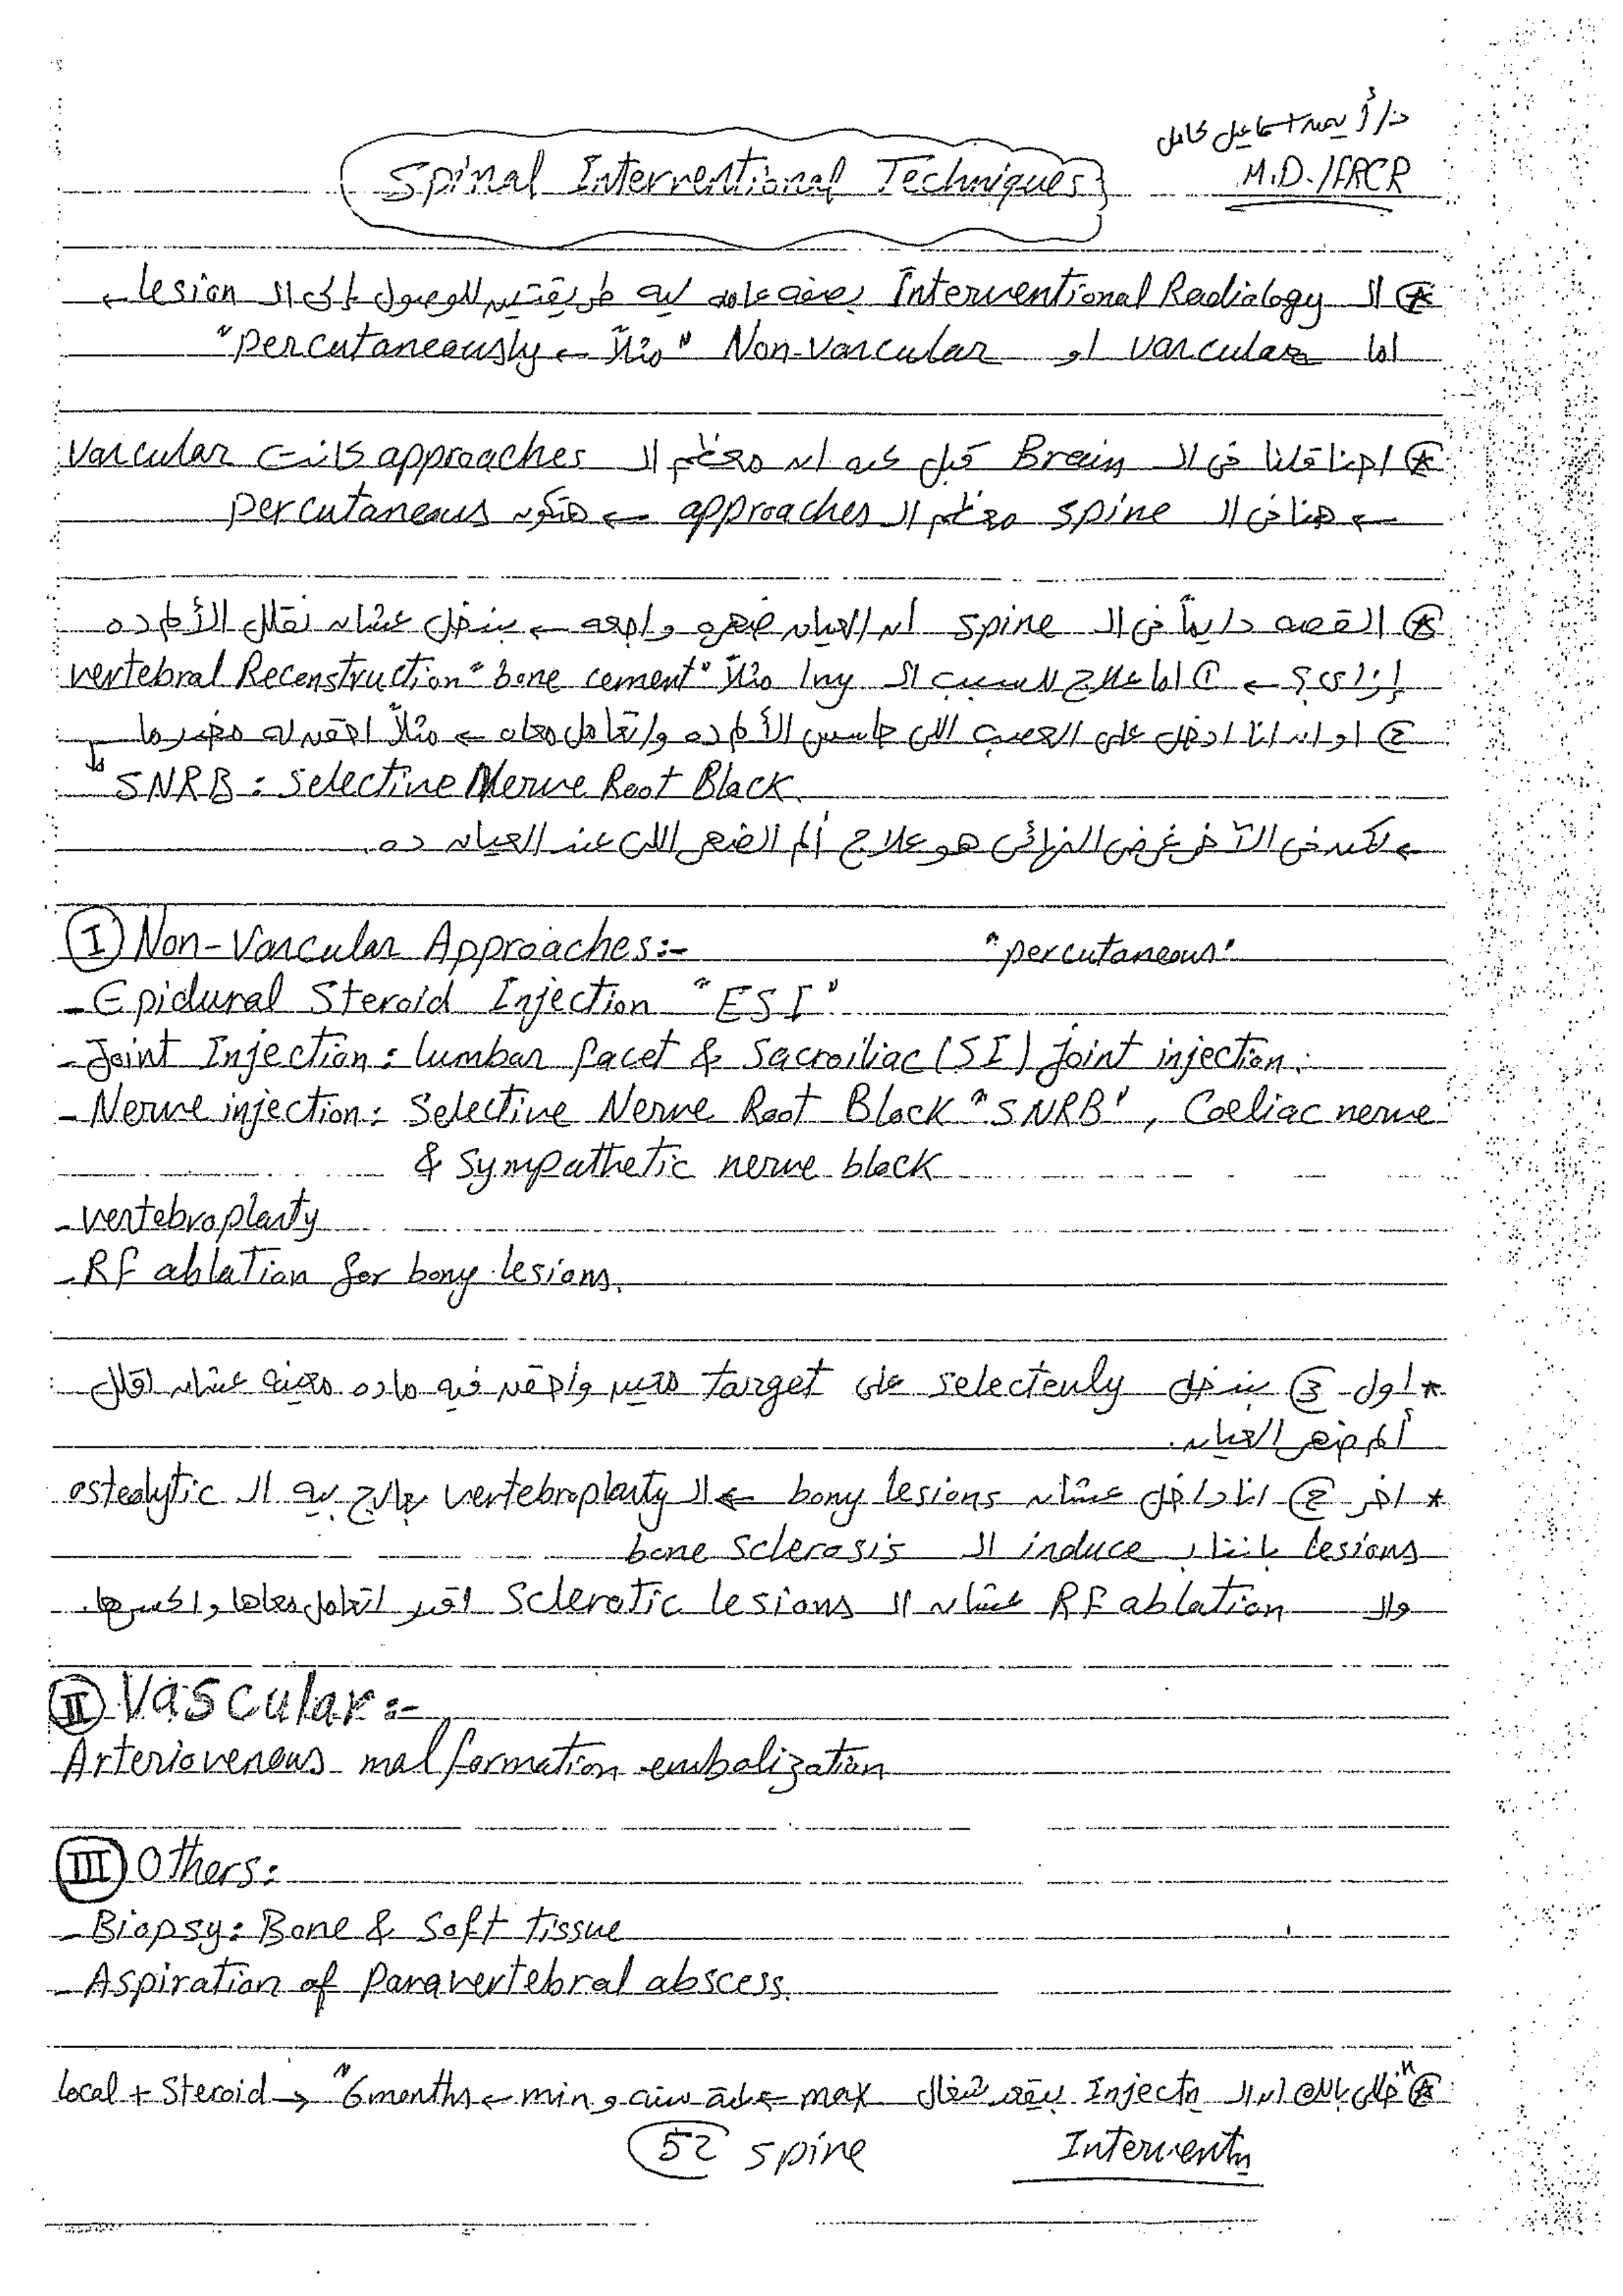 Spinal Interventional Techniques
د/ أيمن إسماعيل كامل
M.D./FRCR
* الـ Interventional Radiology بصفه عامه ليه طريقتين للوصول إلى الـ lesion ←
اما vascular او Non-vascular "مثلاً ← percutaneously"
* احنا قلنا فى الـ Brain قبل كده ان معظم الـ approaches كانت vascular
← هنا فى الـ spine معظم الـ approaches ← هتكون percutaneous
* القصه دايماً فى الـ spine ان العيان ضهره واجعه ← بندخل عشان نقلل الألم ده
إزاى؟ ← ① اما علاج للسبب الـ 1ry مثلاً "vertebral Reconstruction "bone cement
② او ان انا ادخل على العصب اللى حاسس الألم ده واتعامل معاه ← مثلاً احقن له مخدر ما
↳ SNRB : Selective Nerve Root Block
← لكن فى الآخر غرضى النهائى هو علاج ألم الضهر اللى عند العيان ده.
Ⓘ Non-Vascular Approaches:- "percutaneous"
- Epidural Steroid Injection "ESI"
- Joint Injection: lumbar facet & Sacroiliac (SI) joint injection.
- Nerve injection: Selective Nerve Root Block "SNRB", Coeliac nerve
& Sympathetic nerve block
- vertebroplasty
- RF ablation for bony lesions.
* اول ③ بندخل selectenly على target معين واحقن فيه ماده معينه عشان اقلل
ألم ضهر العيان.
* اخر ② انا داخل عشان bony lesions ← الـ vertebroplasty بعالج بيه الـ osteolytic
lesions بانى induce الـ bone sclerosis
والـ RF ablation عشان الـ Sclerotic lesions اقدر اتعامل معاها واكسرها.
Ⅱ Vascular:-
Arteriovenous malformation embolization
Ⅲ Others:
- Biopsy: Bone & Soft tissue
- Aspiration of Paravertebral abscess.
* خلى بالك ان الـ Injectn بيقعد شغال max ← لمدة سنة و min ← 6 months" ← local + Steroid
52 spine Interventn